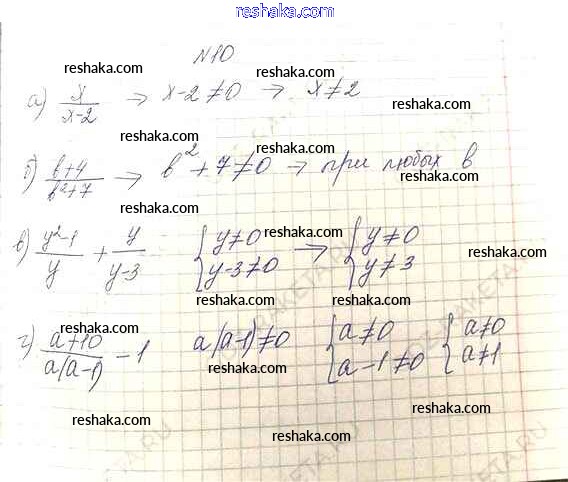 reshaka.com
reshaka.com
N10
reshaka.com reshaka.com
а) x/(x-2) → x-2≠0 → x≠2
reshaka.com reshaka.com
reshaka.com
б) (b+4)/(b²+7) → b²+7≠0 → при любых b
reshaka.com reshaka.com
reshaka.com
в) (y²-1)/y + y/(y-3) {y≠0 y-3≠0 → {y≠0 y≠3
reshaka.com reshaka.com
reshaka.com reshaka.com
г) (a+10)/(a(a-1)) - 1 a(a-1)≠0 {a≠0 a-1≠0 {a≠0 a≠1
reshaka.com
reshaka.com
reshaka.com
reshaka.com
reshaka.com